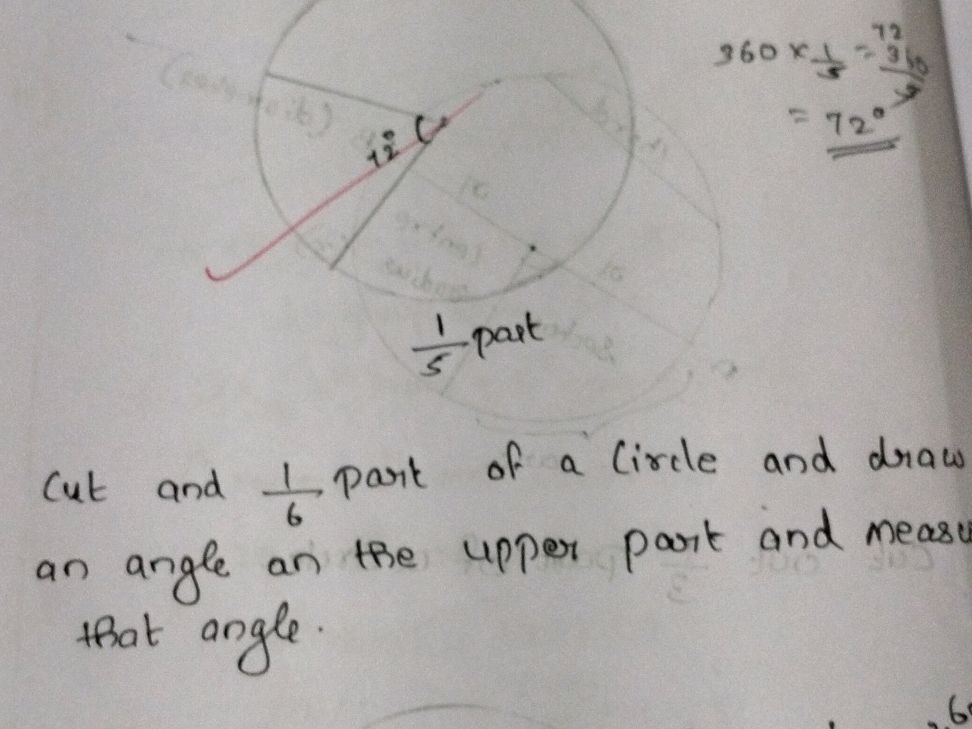 360 × 1/5 = 72
360
5
= 72°
72°
1/5 part
Cut and 1/6 part of a Circle and draw
an angle an the upper part and measu
that angle.